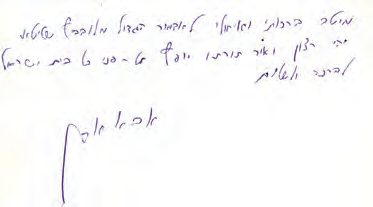 מיטב ברכותי ואיחולי לאדמור הגדול מלובביץ שליט"א
יהי רצון ואור תורתו יופיע על פני כל בית ישראל
לברכה ולשלום
אבא אבן